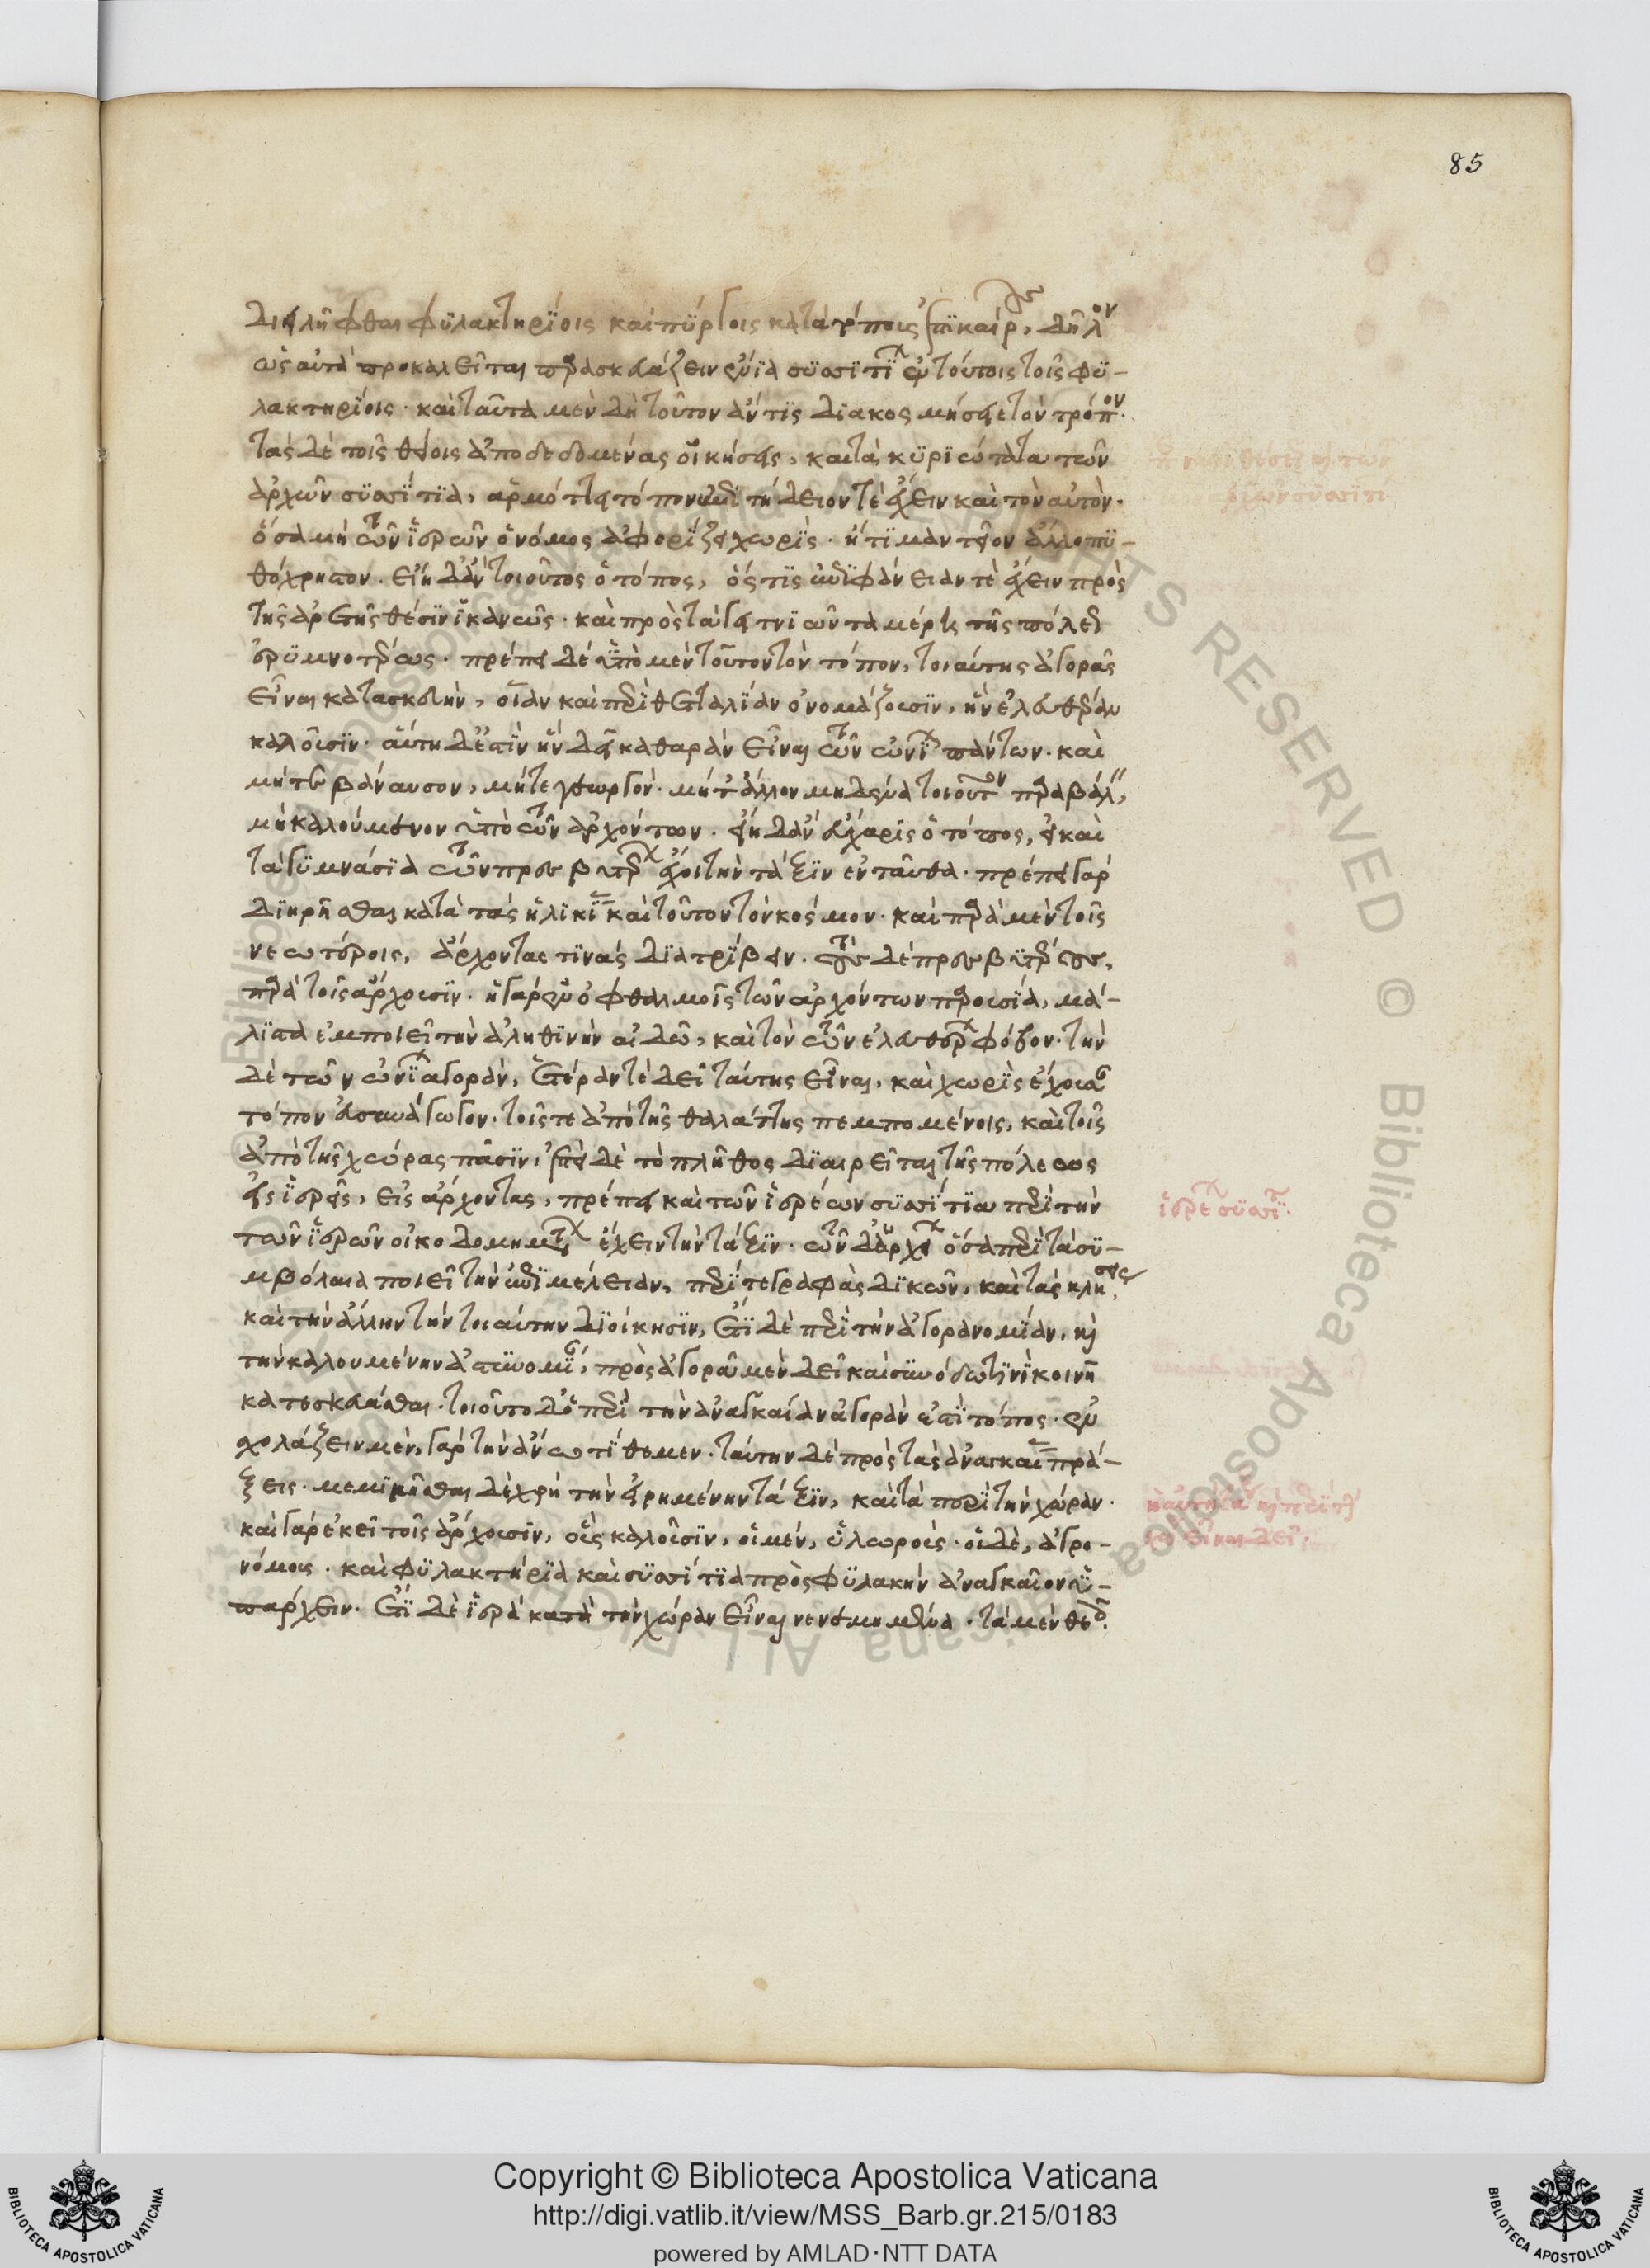 85
διειλῆφθαι φυλακτηρίοις καὶ πύργοις κατὰ τόπους ἐπικαίρους, δῆλον
ὡς αὐτὰ προκαλεῖται παρασκευάζειν ἔνια συσσιτίων ἐν τούτοις τοῖς φυ-
λακτηρίοις. καὶ ταῦτα μὲν δὴ τοῦτον ἄν τις διακοσμήσειε τὸν τρόπον.
τὰς δὲ τοῖς θείοις ἀποδεδομένας οἰκήσεις, καὶ τὰ κυριώτατα τῶν
ἀρχῶν συσσίτια, ἁρμόττει τόπον ἐπιτήδειόν τε ἔχειν καὶ τὸν αὐτόν.
ὅσα μὴ τῶν ἱερῶν ὁ νόμος ἀφορίζει χωρίς. ἤ τι μαντεῖον ἄλλο πυ-
θόχρηστον. εἴη δ' ἂν τοιοῦτος ὁ τόπος, ὅς τις ἐπιφάνειάν τε ἔχειν πρὸς
τῆς ἀρετῆς θέσιν ἱκανῶς. καὶ πρὸς τὰ γειτνιῶντα μέρη τῆς πόλεως
ἐρυμνοτέρως. πρέπει δὲ ὑπὸ μὲν τοῦτον τὸν τόπον, τοιαύτης ἀγορᾶς
εἶναι κατασκευήν, οἵαν καὶ περὶ θετταλίαν ὀνομάζουσιν, ἣν ἐλευθέραν
καλοῦσιν. αὕτη δέ ἐστιν ἣν δεῖ καθαρὰν εἶναι τῶν ὠνίων πάντων. καὶ
μήτε βάναυσον, μήτε γεωργόν. μήτ' ἄλλον μηδένα τοιοῦτον παραβάλλειν
μὴ καλούμενον ὑπὸ τῶν ἀρχόντων. εἴη δ' ἂν εὔχαρις ὁ τόπος, εἰ καὶ
τὰ γυμνάσια τῶν πρεσβυτέρων ἔχοι τὴν τάξιν ἐνταῦθα. πρέπει γὰρ
διῃρῆσθαι κατὰ τὰς ἡλικίας καὶ τοῦτον τὸν κόσμον. καὶ παρὰ μὲν τοῖς
νεωτέροις, ἄρχοντάς τινας διατρίβειν. τοὺς δὲ πρεσβυτέρους,
παρὰ τοῖς ἄρχουσιν. ἡ γὰρ ἐν ὀφθαλμοῖς τῶν ἀρχόντων παρουσία, μά-
λιστα ἐμποιεῖ τὴν ἀληθινὴν αἰδῶ, καὶ τὸν τῶν ἐλευθέρων φόβον. τὴν
δὲ τῶν ὠνίων ἀγορὰν, ἑτέραν τε δεῖ ταύτης εἶναι, καὶ χωρὶς ἔχουσαν
τόπον εὐσυνάγωγον. τοῖς τε ἀπὸ τῆς θαλάττης πεμπομένοις, καὶ τοῖς
ἀπὸ τῆς χώρας πᾶσιν, ἐπεὶ δὲ τὸ πλῆθος διαιρεῖται τῆς πόλεως
εἰς ἱερεῖς, εἰς ἄρχοντας, πρέπει καὶ τῶν ἱερέων συσσίτια περὶ τὴν
τῶν ἱερῶν οἰκοδομημάτων ἔχειν τὴν τάξιν. τῶν δ' ἀρχείων ὅσα περὶ τὰ συ-
μβόλαια ποιεῖ τὴν ἐπιμέλειαν, περί τε γραφὰς δικῶν, καὶ τὰς κλήσεις
καὶ τὴν ἄλλην τὴν τοιαύτην διοίκησιν, ἔτι δὲ περὶ τὴν ἀγορανομίαν, καὶ
τὴν καλουμένην ἀστυνομίαν, πρὸς ἀγορᾷ μὲν δεῖ καὶ συνόδῳ τινὶ κοινῇ
κατεσκευάσθαι. τοιοῦτο δ' ὁ περὶ τὴν ἀναγκαίαν ἀγοράν ἐστι τόπος. ἐν
σχολάζειν μὲν γὰρ τὴν ἄνω τίθεμεν. ταύτην δὲ πρὸς τὰς ἀναγκαίας πρά-
ξεις. μεμιμῆσθαι δὲ χρὴ τὴν εἰρημένην τάξιν, καὶ τὰ περὶ τὴν χώραν.
καὶ γὰρ ἐκεῖ τοῖς ἄρχουσιν, οὓς καλοῦσιν, οἱ μὲν, ὑλωροὺς. οἱ δὲ, ἀγρο-
νόμους. καὶ φυλακτήρια καὶ συσσίτια πρὸς φυλακὴν ἀναγκαῖον ὑ-
πάρχειν. ἔτι δὲ ἱερὰ κατὰ τὴν χώραν εἶναι νενεμημένα. τὰ μὲν θεοῖς.
ἱερέων συσσίτια.
Copyright © Biblioteca Apostolica Vaticana
http://digi.vatlib.it/view/MSS_Barb.gr.215/0183
powered by AMLAD·NTT DATA
BIBLIOTECA APOSTOLICA VATICANA
BIBLIOTECA APOSTOLICA VATICANA
© Biblioteca Apostolica Vaticana ALL RIGHTS RESERVED